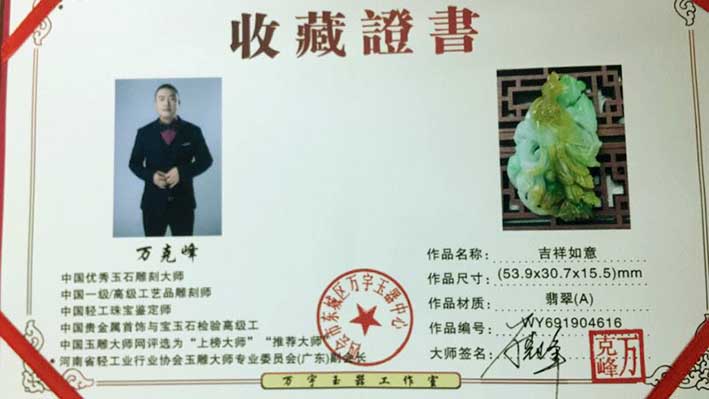 收藏證書
万克峰
中国优秀玉石雕刻大师
中国一级/高级工艺品雕刻师
中国轻工珠宝鉴定师
中国贵金属首饰与宝玉石检验高级工
中国玉雕大师网评选为“上榜大师” “推荐大师”
河南省轻工业行业协会玉雕大师专业委员会(广东)副会长
作品名称: 吉祥如意
作品尺寸: (53.9x30.7x15.5)mm
作品材质: 翡翠(A)
作品编号: WY691904616
大师签名:
万克峰
市东城区万字玉器中心
万字玉器工作室